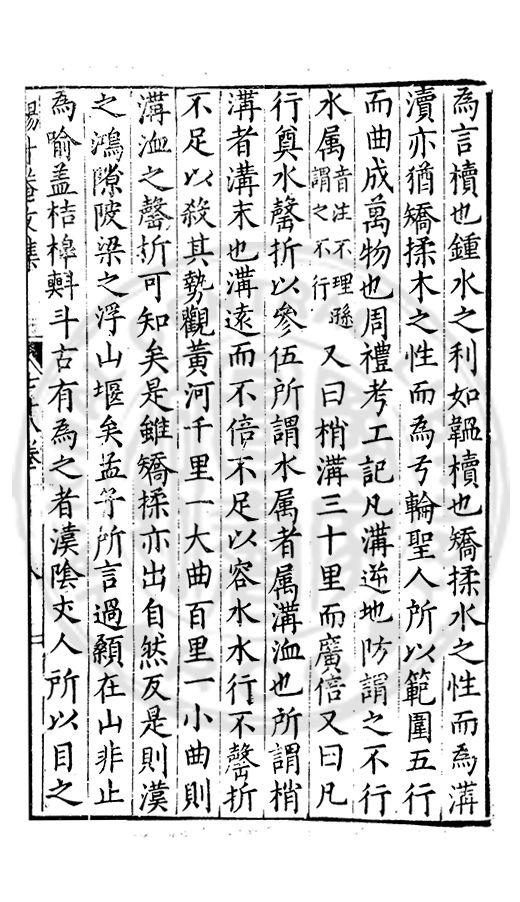 為言櫝也鍾水之利如韞櫝也矯揉水之性而為溝
瀆亦猶矯揉木之性而為弓輪聖人所以範圍五行
而曲成萬物也周禮考工記凡溝逆地阞謂之不行
水属音注不理遜謂之不行又曰梢溝三十里而廣倍又曰凡
行奠水磬折以參伍所謂水属者属溝洫也所謂梢
溝者溝末也溝遠而不倍不足以容水水行不磬折
不足以殺其勢觀黃河千里一大曲百里一小曲則
溝洫之磬折可知矣是雖矯揉亦出自然反是則漢
之鴻隙陂梁之浮山堰矣孟子所言過顙在山非止
為喻盖桔槔㪺斗古有為之者漢陰丈人所以目之
楊升菴文集
七十八卷
八